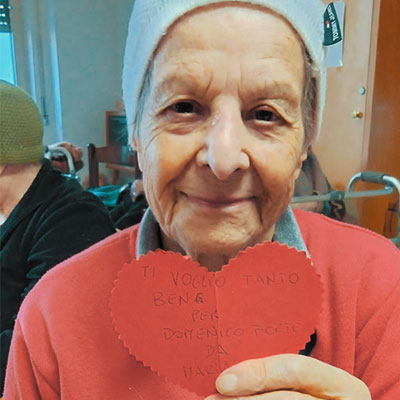 TI VOGLIO TANTO
BENE
PER
DOMENICO
DA